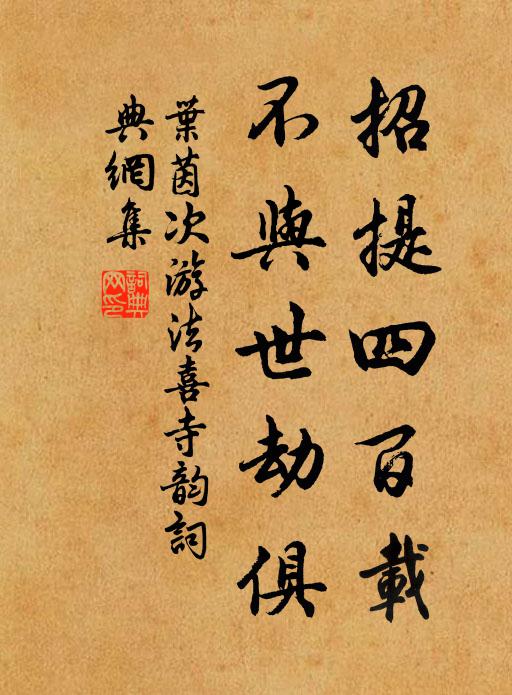 招提四百載
不與世劫俱
葉茵次游法喜寺韵詞
典網集
詞典
网印